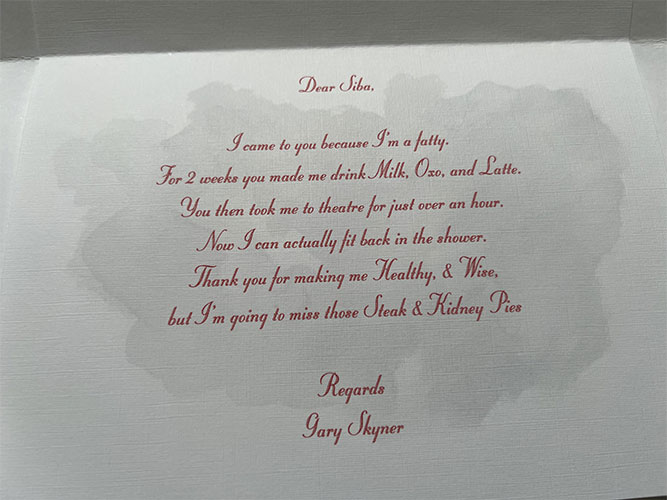 Dear Siba,
I came to you because I'm a fatty.
For 2 weeks you made me drink Milk, Oxo, and Latte.
You then took me to theatre for just over an hour.
Now I can actually fit back in the shower.
Thank you for making me Healthy, & Wise,
but I'm going to miss those Steak & Kidney Pies
Regards
Gary Skyner